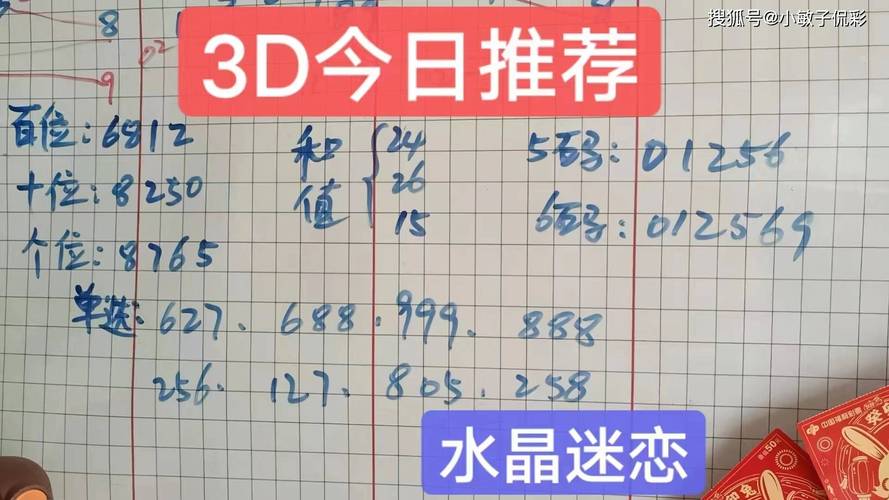 搜狐号@小敏子侃彩
8
0²
9
3D今日推荐
百位:6812
十位:8250
个位:8765
和值{24
26
15
5码:01256
6码:012569
单选:627. 688. 999. 888
256. 127. 805. 258
水晶迷恋
中国福利彩票
面值50元